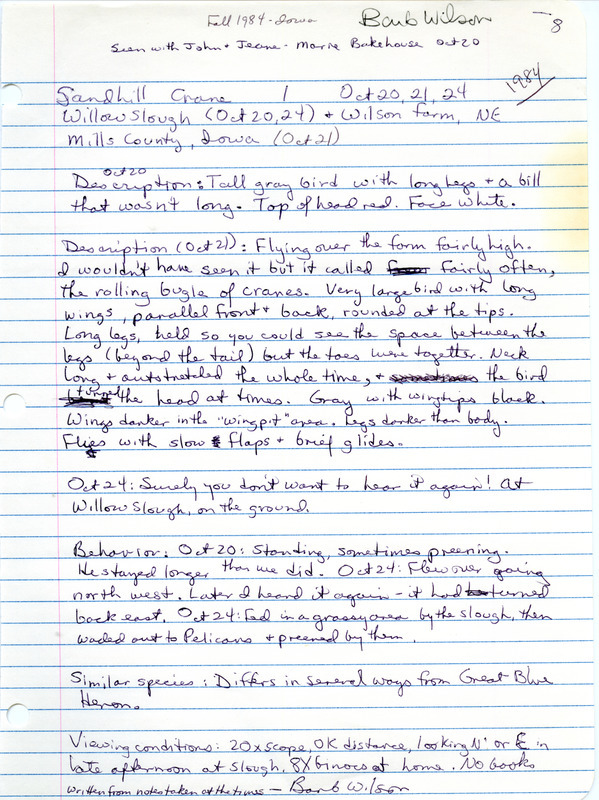 Fall 1984 - Iowa Barb Wilson -8
Seen with John + Jeane - Marie Bakehouse Oct 20
1984
Sandhill Crane 1 Oct 20, 21, 24
Willow Slough (Oct 20, 24) + Wilson farm, NE
Mills County, Iowa (Oct 21)
Oct 20
Description: Tall gray bird with long legs + a bill
that wasn't long. Top of head red. Face white.
Description (Oct 21): Flying over the farm fairly high.
I wouldn't have seen it but it called fairly often,
the rolling bugle of cranes. Very large bird with long
wings, parallel front + back, rounded at the tips.
Long legs, held so you could see the space between the
legs (beyond the tail) but the toes were together. Neck
long + outstretched the whole time, + the bird
turned the head at times. Gray with wingtips black.
Wings darker in the "wingpit" area. Legs darker than body.
Flies with slow flaps + brief glides.
Oct 24: Surely you don't want to hear it again! At
Willow Slough, on the ground.
Behavior: Oct 20: Standing, sometimes preening.
He stayed longer than we did. Oct 24: Flew over going
north west. Later I heard it again - it had turned
back east. Oct 24: Fed in a grassy area by the slough, then
waded out to Pelicans + preened by them.
Similar species: Differs in several ways from Great Blue
Heron.
Viewing conditions: 20x scope, OK distance, looking N or E in
late afternoon at slough, 8X binocs at home. No books
written from notes taken at the times - Barb Wilson